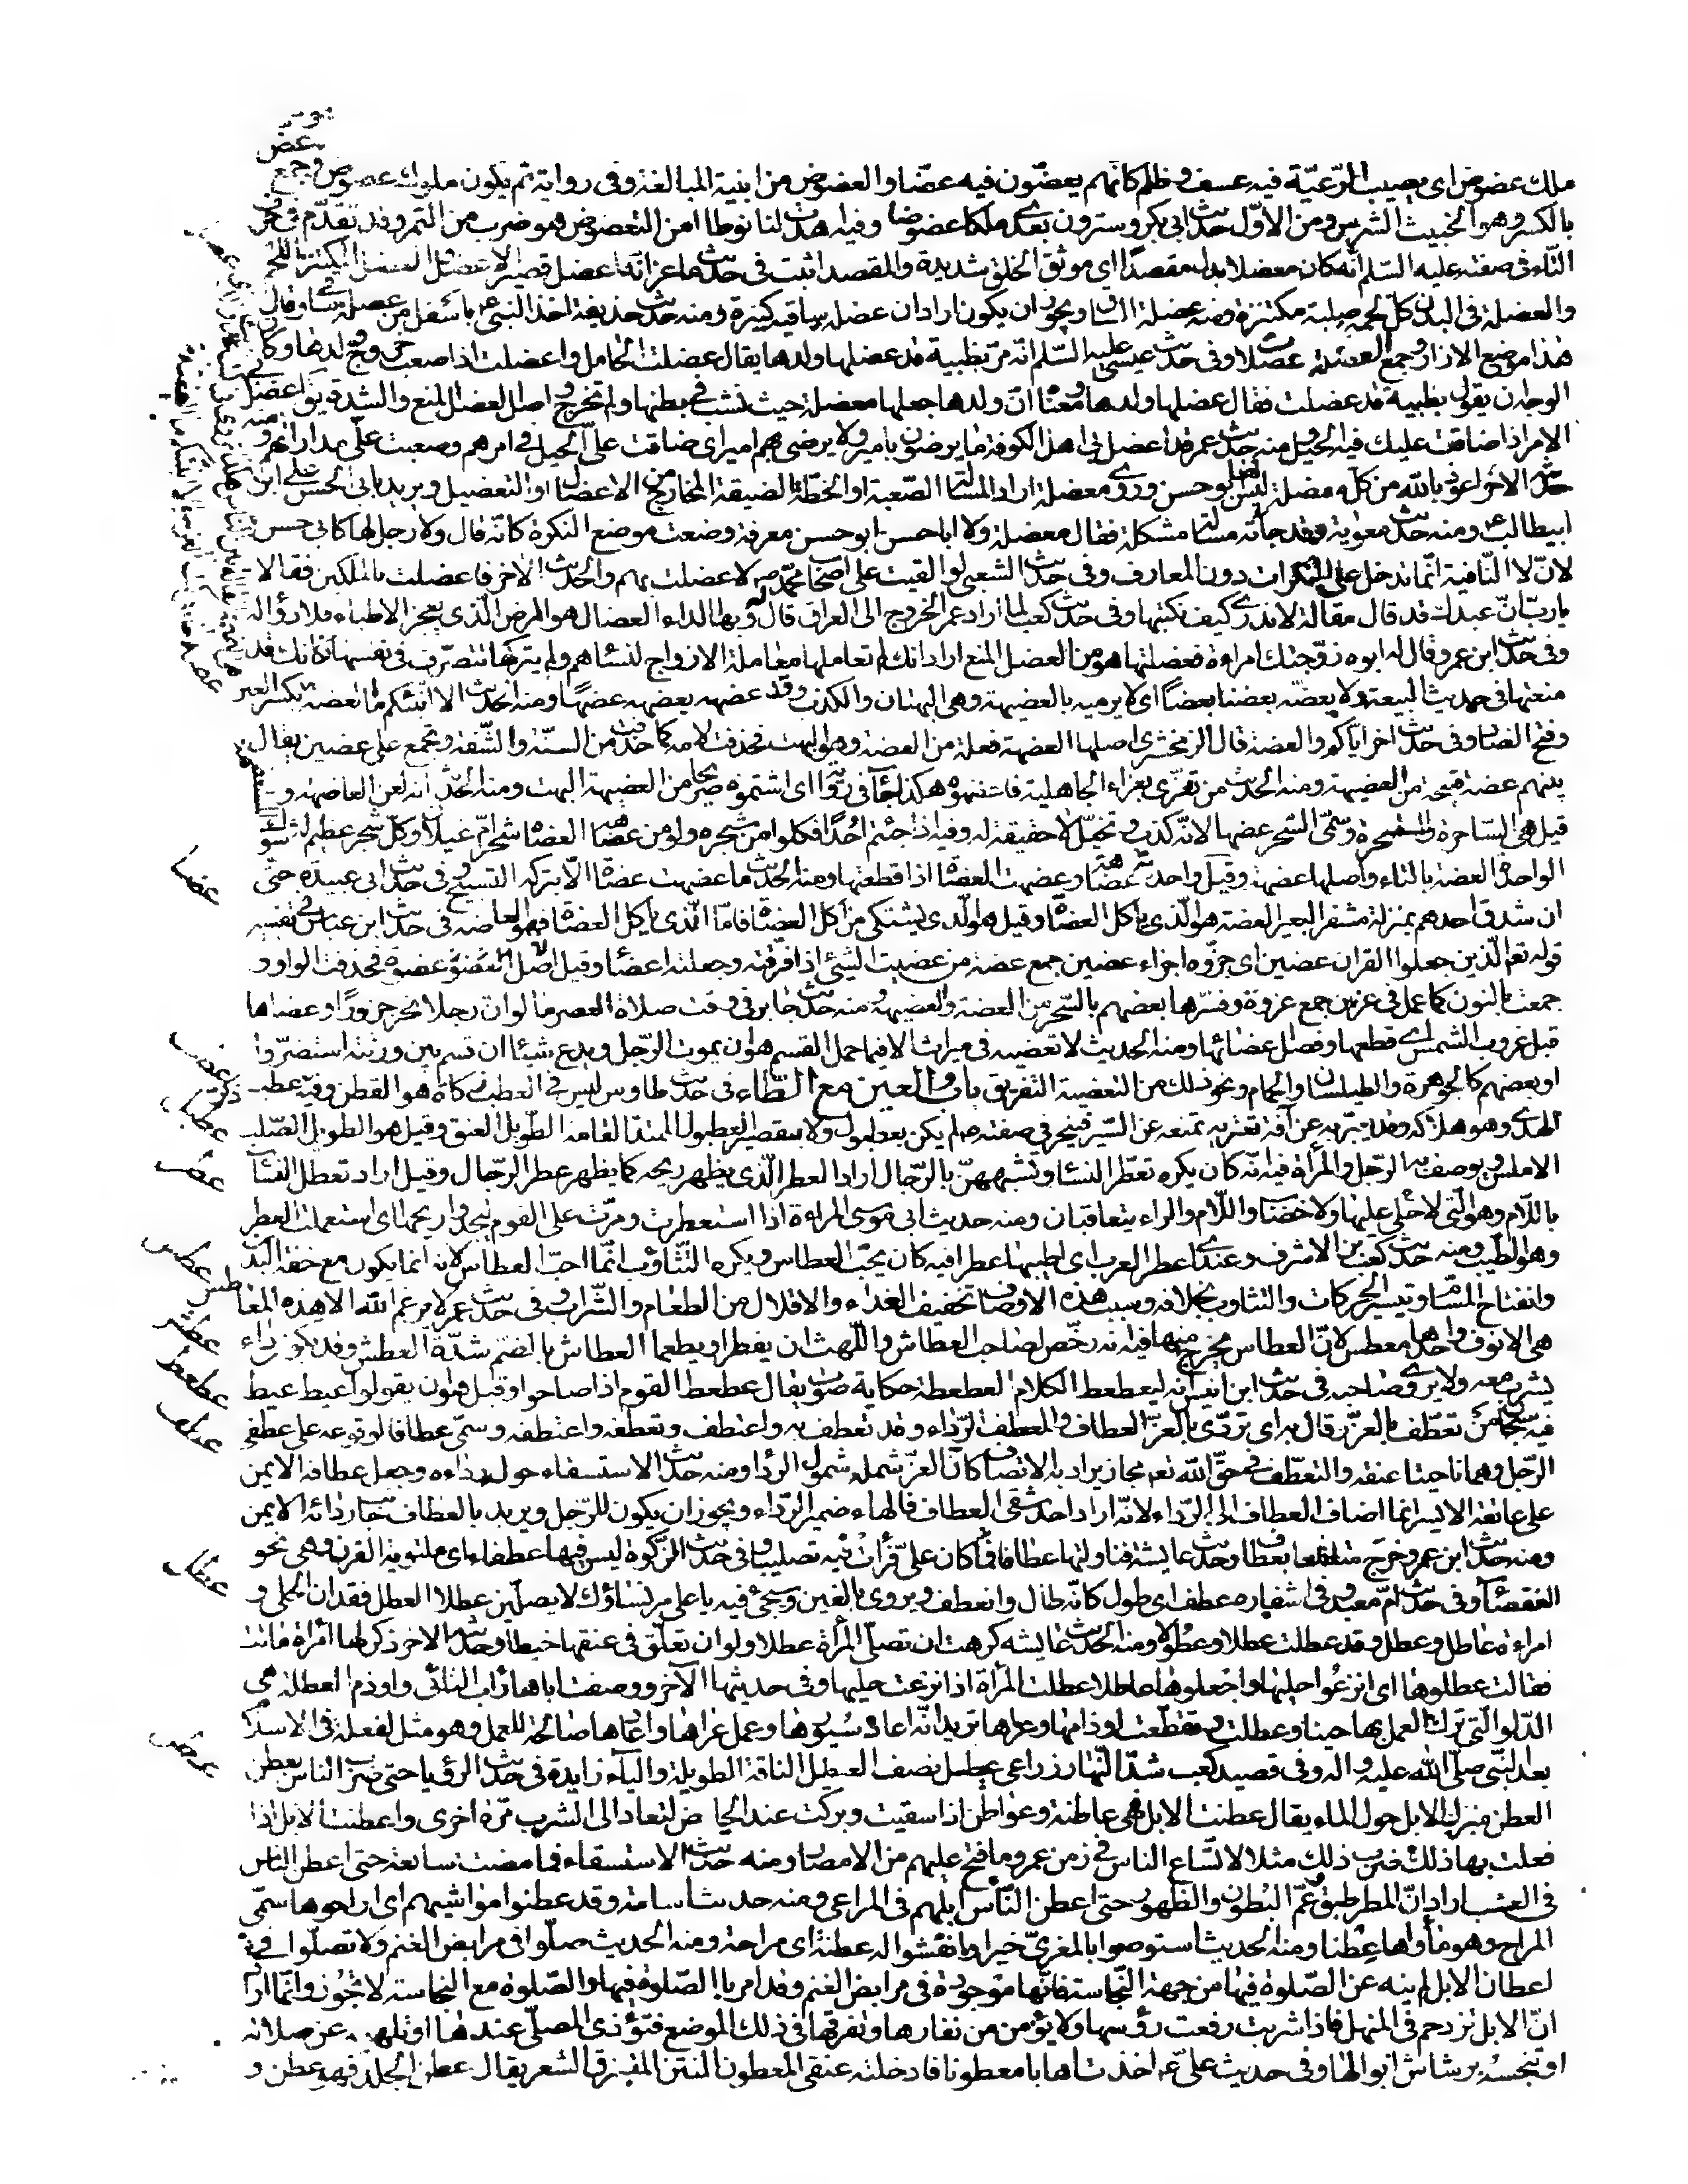 ملك عضوض اى يصيب الرّعيّة فيه عسف وظلم كانّهم يعضّون فيه عضّا والعضوض من ابنية المبالغة وفى رواية ثم يكون ملوك عضوض وجمع
عض
بالكسر وهو الخبيث الشرس ومن الاوّل حديث ابى بكر وسترون بعدى ملكا عضوضا وفيه اهدت لنا نوطا من التعضوض هو ضرب من التمر وقد تقدّم فى حرف
التّاء فى صفته عليه السّلم انّه كان معضلا بدل مقصدًا اى موثق الخلق شديدة والمقصد اثبت فى حديث ماعز انّه اعضل قصير الاعضل والعضل المكتنز اللحم
والعضلة فى البدن كل لحمة صلبة مكتنزة ومنه عضلة الساق ويجوز ان يكون اراد ان عضلة ساقيه كبيرة ومنه حديث حذيفة اخذ النبى ع باسفل من عضلة ساقى وقال
هذا موضع الازار وجمع العضلة عضلات وفى حديث عيسى عليه السّلم انّه مرّ بظبية قد عضلها ولدها يقال عضلت الحامل واعضلت اذا صعب خروج ولدها وكان
الوجه ان يقول بظبية قد عضلت فقال عضلها ولدها ومعناه انّ ولدها جعلها معضلة حيث نشب فى بطنها ولم تخرج واصل العضل المنع والشدة يق اعضل بى
الامر اذا ضاقت عليك فيه الحيل ومنه حديث عمر قد اعضل بى اهل الكوفة ما يرضون بامير ولا يرضى بهم امير اى ضاقت علىّ الحيل فى امرهم وصعبت علىّ مداراتهم و
حديثه الاخر اعوذ بالله من كل معضلة ليس لها ابوحسن وروى معضلة اراد المسالة الصّعبة او الخطّة الضيقة المخارج من الاعضال او التعضيل ويريد بابى الحسن على ابن
ابيطالب ع ومنه حديث معوية وقد جاءته مسالة مشكلة فقال معضلة ولا اباحسن ابوحسن معرفة وضعت موضع النكرة كانّه قال ولا رجل لها كابى حسن
لانّ لا النّافية انّما تدخل على النكرات دون المعارف وفى حديث الشعبى لو القيت على اصحاب محمّد ص لاعضلت بهم والحديث الاخر فاعضلت بالملكين فقالا
يا ربّ انّ عبدك قد قال مقالة لا ندرى كيف نكتبها وفى حديث كعب لما اراد عمر الخروج الى العراق قال له وبها الداء العضال هو المرض الّذى يعجز الاطباء فلا دواء له
وفى حديث ابن عمرو قال له ابوه زوّجتك امراءة فعضلتها هو من العضل المنع اراد انك لم تعاملها معاملة الازواج لنسائهم ولم يتركها تتصرّف فى نفسها فكانك قد
منعتها فى حديث البيعة ولا يعضه بعضنا بعضًا اى لا يرميه بالعضيهة وهى البهتان والكذب وقد عضهه يعضهه عضهًا ومنه الحديث الا انبّئكم ما العضه بكسر العين
وفتح الضاد وفى حديث اخر اياكم والعضة قال الزمخشرى اصلها العضهة فعلة من العضه وهو البهت فحذفت لامه كما حذفت من السنة والشّفة ويجمع على عضين يقال
بينهم عضة قبيحة من العضيهة ومنه الحديث من تعزّى بعزاء الجاهلية فاعضهوه هكذا جاء فى رواية اى اشتموه صريحا من العضيهة البهت ومنه الحديث انه لعن العاضهة و
قيل هى السّاحرة والمستسحرة وسمّى السّحر عضها لانّه كذب وتخيّل لا حقيقة له وفيه اذا جئتم احُدًا فكلوا من شجره ولو من عضاهه العضاه شجر امّ غيلان وكل شجر عظيم له شوك
الواحدة العضه بالتاء واصلها عضهة وقيل واحدته عضاهة وعضهت العضاه اذا قطعتها ومنه الحديث ما عضهت عضاه الّا بتركها التسبيح وفى حديث ابى عبيدة حتّى
ان شدق احدهم بمنزلة مشفر البعير العضه هو الّذى ياكل العضاه وقيل هو الّذى يشتكى من اكل العضاه فامّا الّذى ياكل العضاه فهو العاضه فى حديث ابن عباس فى تفسير
قوله تع الّذين جعلوا القران عضين اى جزّوه اجزاء عضين جمع عضة من عضيت الشئ اذا فرّقته وجعلته اعضاء وقيل الاصل عضوة فحذفت الواو و
جمعت بالنون كما عمل فى عزين جمع عزوة وفسّرها بعضهم بالسّحر من العضة والعضيهة ومنه حديث جابر فى وقت صلاة العصر ما لو ان رجلا نحر جزورًا وعضاها
قبل غروب الشمس اى قطعها وفصل اعضائها ومنه الحديث لا تعضية فى ميراث الا فيما حمل القسم هو ان يموت الرّجل ويدع شيئا ان قسم بين ورثته استضرّوا
او بعضهم كالجوهرة والطيلسان والحمام ونحو ذلك من التعضية التفريق باب العين مع الطّاء فى حديث طاوس ليس فى العطب زكاة هو القطن وفيه عطب
الهدى وهو هلاكه وقد يعبّر به عن آفة تعتريه تمنعه عن السّير فينحر فى صفته ص لم يكن بعطبول ولا بقصير العطبول الممتد القامة الطّويل العنق وقيل هو الطويل الصّلب
الاملس ويوصف به الرّجل والمراة فيه انّه كان يكره تعطّر النساء وتشبههنّ بالرّجال اراد العطر الّذى يظهر ريحه كما يظهر عطر الرّجال وقيل اراد تعطل النساء
باللّام وهو الّتى لا حُلى عليها ولا خضاب واللّام والراء يتعاقبان ومنه حديث ابى موسى المراءة اذا استعطرت ومرّت على القوم ليجدوا ريحها اى استعملت العطر
وهو الطّيب ومنه حديث كعب بن الاشرف وعندى اعطر العرب اى اطيبها عطرا فيه كان يحبّ العطاس ويكره التّثاؤب انّما احبّ العطاس لانه انما يكون مع خفة البدن
وانفتاح المسام وتيسير الحركات والتثاوب بخلافه وسبب هذه الاوصاف تخفيف الغذاء والاقلال من الطعام والشّراب وفى حديث عمر لا يرغم الله الا هذه المعاطس
هى الانوف واحدها معطس لانّ العطاس يخرج منها فيه انه رخّص لصاحب العطاش واللّهث ان يفطرا ويطعما العطاش بالضّم شدّة العطش وقد يكون داء
يشرب معه ولا يروى صاحبه فى حديث ابن انيس انه ليعطعط الكلام العطعطة حكاية صوت يقال عطعط القوم اذا صاحوا وقيل هو ان يقولوا عيط عيط
فيه سبحان من تعطّف بالعزّ وقال به اى تردّى بالعزّ العطاف والمعطف الرّداء وقد تعطف به واعتطف وتعطفه واعتطفه وسمّى عطافا لوقوعه على عطفى
الرّجل وهما ناحيتا عنقه والتعطّف فى حقّ الله تع مجاز يراد به الاتصاف كانّ العزّ شمله شمول الرّداء ومنه حديث الاستسقاء حول رداءه وجعل عطافه الايمن
على عاتقه الايسر انما اضاف العطاف الى الرّداء لانّه اراد احد شقى العطاف فالهاء ضمير الرّداء ويجوز ان يكون للرّجل ويريد بالعطاف جانب ردائه الايمن
ومنه حديث ابن عمر وخرج متلفعا بعطاف وحديث عايشة فناولتها عطافا كان علىّ فرات فيه تصليبا وفى حديث الزّكوة ليس فيها عطفاء اى ملتوية القرن وهى نحو
العقصاء وفى حديث امّ معبد وفى اشفاره عطف اى طول كانّه طال وانعطف ويروى بالغين وسيجئ فيه يا على مر نساؤك لا يصلّين عطلا العطل فقدان الحلى و
امراءة عاطل وعطل وقد عطلت عطلا وعطولا ومنه الحديث عايشه كرهت ان تصلّى المراة عطلا ولو ان تعلّق فى عنقها خيطا وحديثها الاخر ذكر لها امراة ماتت
فقالت عطلوها اى انزعوا حليها واجعلوها عاطلا عطلت المراة اذا نزعت حليها وفى حديثها الآخر ووصفت اباها فراب الثائى واوذم العطلة هى
الدّلو الّتى ترك العمل بها حينا وعطلت وتقطّعت اوذامها وعراها تريد انّه اعاد سيورها وعمل عراها واعادها صالحة للعمل وهو مثل لفعله فى الاسلام
بعد النّبى صلّى الله عليه واله وفى قصيد كعب شدّ النّهار ذراعى عيطل نصف العيطل الناقة الطويلة والياء زايدة فى حديث الرؤيا حتى ضرب الناس بعطن
العطن مبرك الابل حول الماء يقال عطنت الابل فهى عاطنة وعواطن اذا سقيت وبركت عند الحياض لتعاد الى الشرب مرّة اخرى واعطنت الابل اذا
فعلت بها ذلك ضرب ذلك مثلا لاتّساع الناس فى زمن عمر وما فتح عليهم من الامصار ومنه حديث الاستسقاء فما مضت سابعة حتى اعطن الناس
فى العشب اراد انّ المطر طبق وعمّ البطون والظهور حتى اعطن النّاس ابلهم فى المراعى ومنه حديث اسامة وقد عطنوا مواشيهم اى اراحوها سمّى
المراح وهو ماواها عطنا ومنه الحديث استوصوا بالمعزى خيرا وانقشوا له عطنة اى مراحة ومنه الحديث صلّوا فى مرابض الغنم ولا تصلّوا فى
اعطان الابل لم ينه عن الصّلوة فيها من جهة النّجاسة فانّها موجودة فى مرابض الغنم وقد امر بالصّلوة فيها والصّلوة مع النجاسة لا تجوز وانّما اراد
انّ الابل تزدحم فى المنهل فاذا شربت رفعت رؤسها ولا يؤمن من نفارها وتفرقها فى ذلك الموضع فتؤذى المصلّى عندها او تلهيه عن صلاته
او تنجسه برشاش ابوالها وفى حديث علىّ ع اخذت اهابا معطونا فادخلته عنقى المعطون المنتن المتمزق الشعر يقال عطن الجلد فهو عطن و
عضا
عطب
عطبل
عطر
عطس
عطش
عطعط
عطف
عطل
عطن